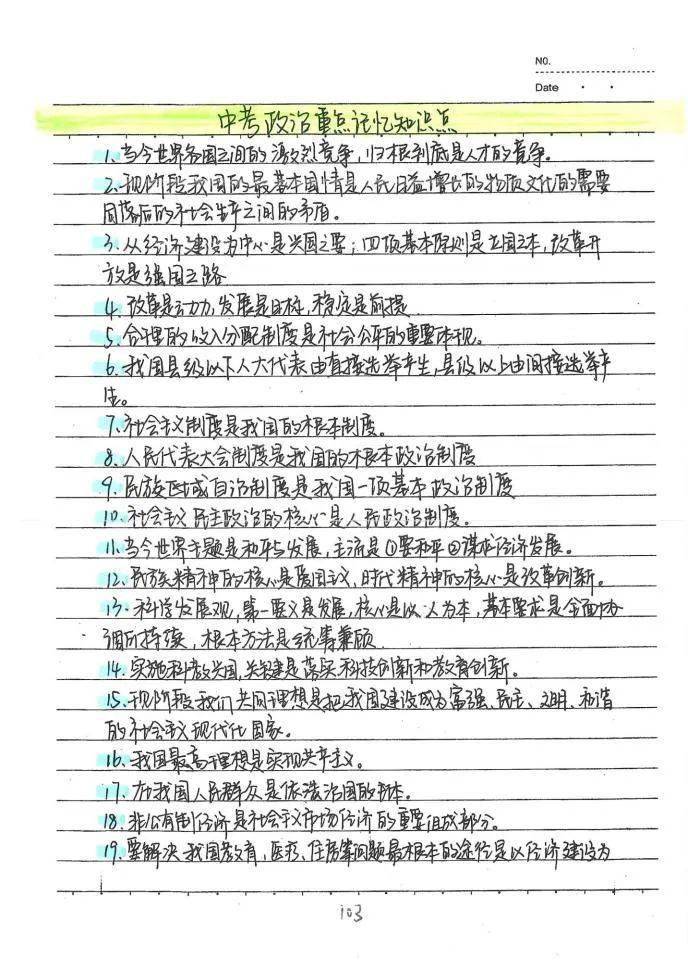 NO.
Date
中考政治重点记忆知识点
1. 当今世界各国之间的激烈竞争,归根到底是人才的竞争。
2. 现阶段我国的最基本国情是人民日益增长的物质文化的需要
同落后的社会生产之间的矛盾。
3. 从经济建设为中心是兴国之要;四项基本原则是立国之本,改革开
放是强国之路
4. 改革是动力,发展是目标,稳定是前提
5. 合理的收入分配制度是社会公平的重要体现。
6. 我国县级以下人大代表由直接选举产生,县级以上由间接选举产
生。
7. 社会主义制度是我国的根本制度。
8. 人民代表大会制度是我国的根本政治制度
9. 民族区域自治制度是我国一项基本政治制度
10. 社会主义民主政治的核心是人民政治制度。
11. 当今世界主题是和平与发展,主流是①要和平②谋求经济发展。
12. 民族精神的核心是爱国主义,时代精神的核心是改革创新。
13. 科学发展观,第一要义是发展,核心是以人为本,基本要求是全面协
调可持续,根本方法是统筹兼顾
14. 实施科教兴国,关键是落实科技创新和教育创新。
15. 现阶段我们共同理想是把我国建设成为富强、民主、文明、和谐
的社会主义现代化国家。
16. 我国最高理想是实现共产主义。
17. 在我国人民群众是依法治国的主体。
18. 非公有制经济是社会主义市场经济的重要组成部分。
19. 要解决我国教育,医疗、住房等问题最根本的途径是以经济建设为
103